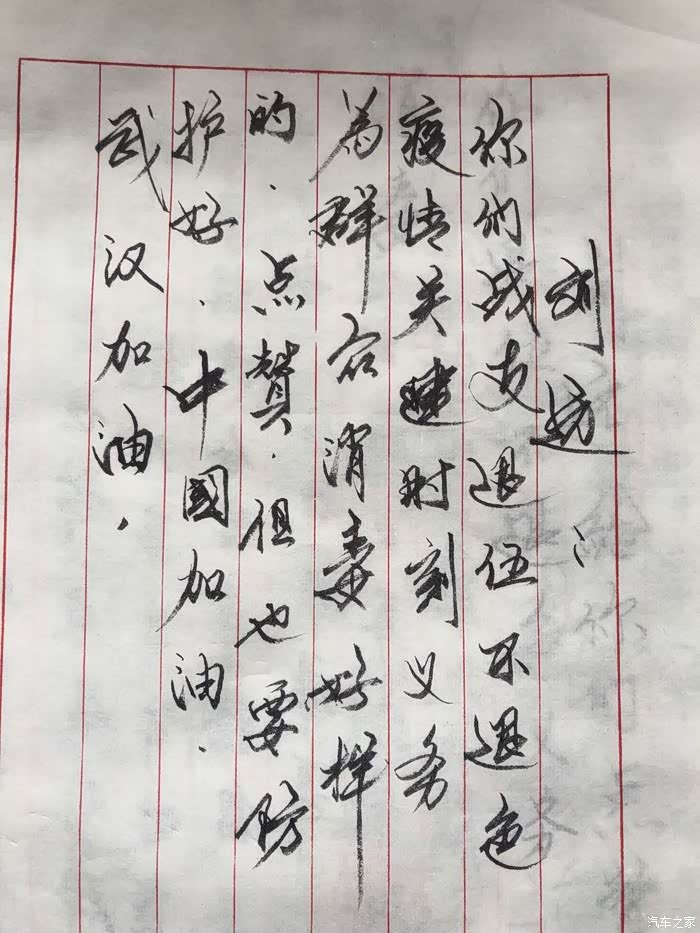 刘边：
你们战友退伍不退色
疫情关建时刻义务
为群众消毒好样
的．点贊．但也要防
护好．中國加油．
武汉加油，
汽车之家